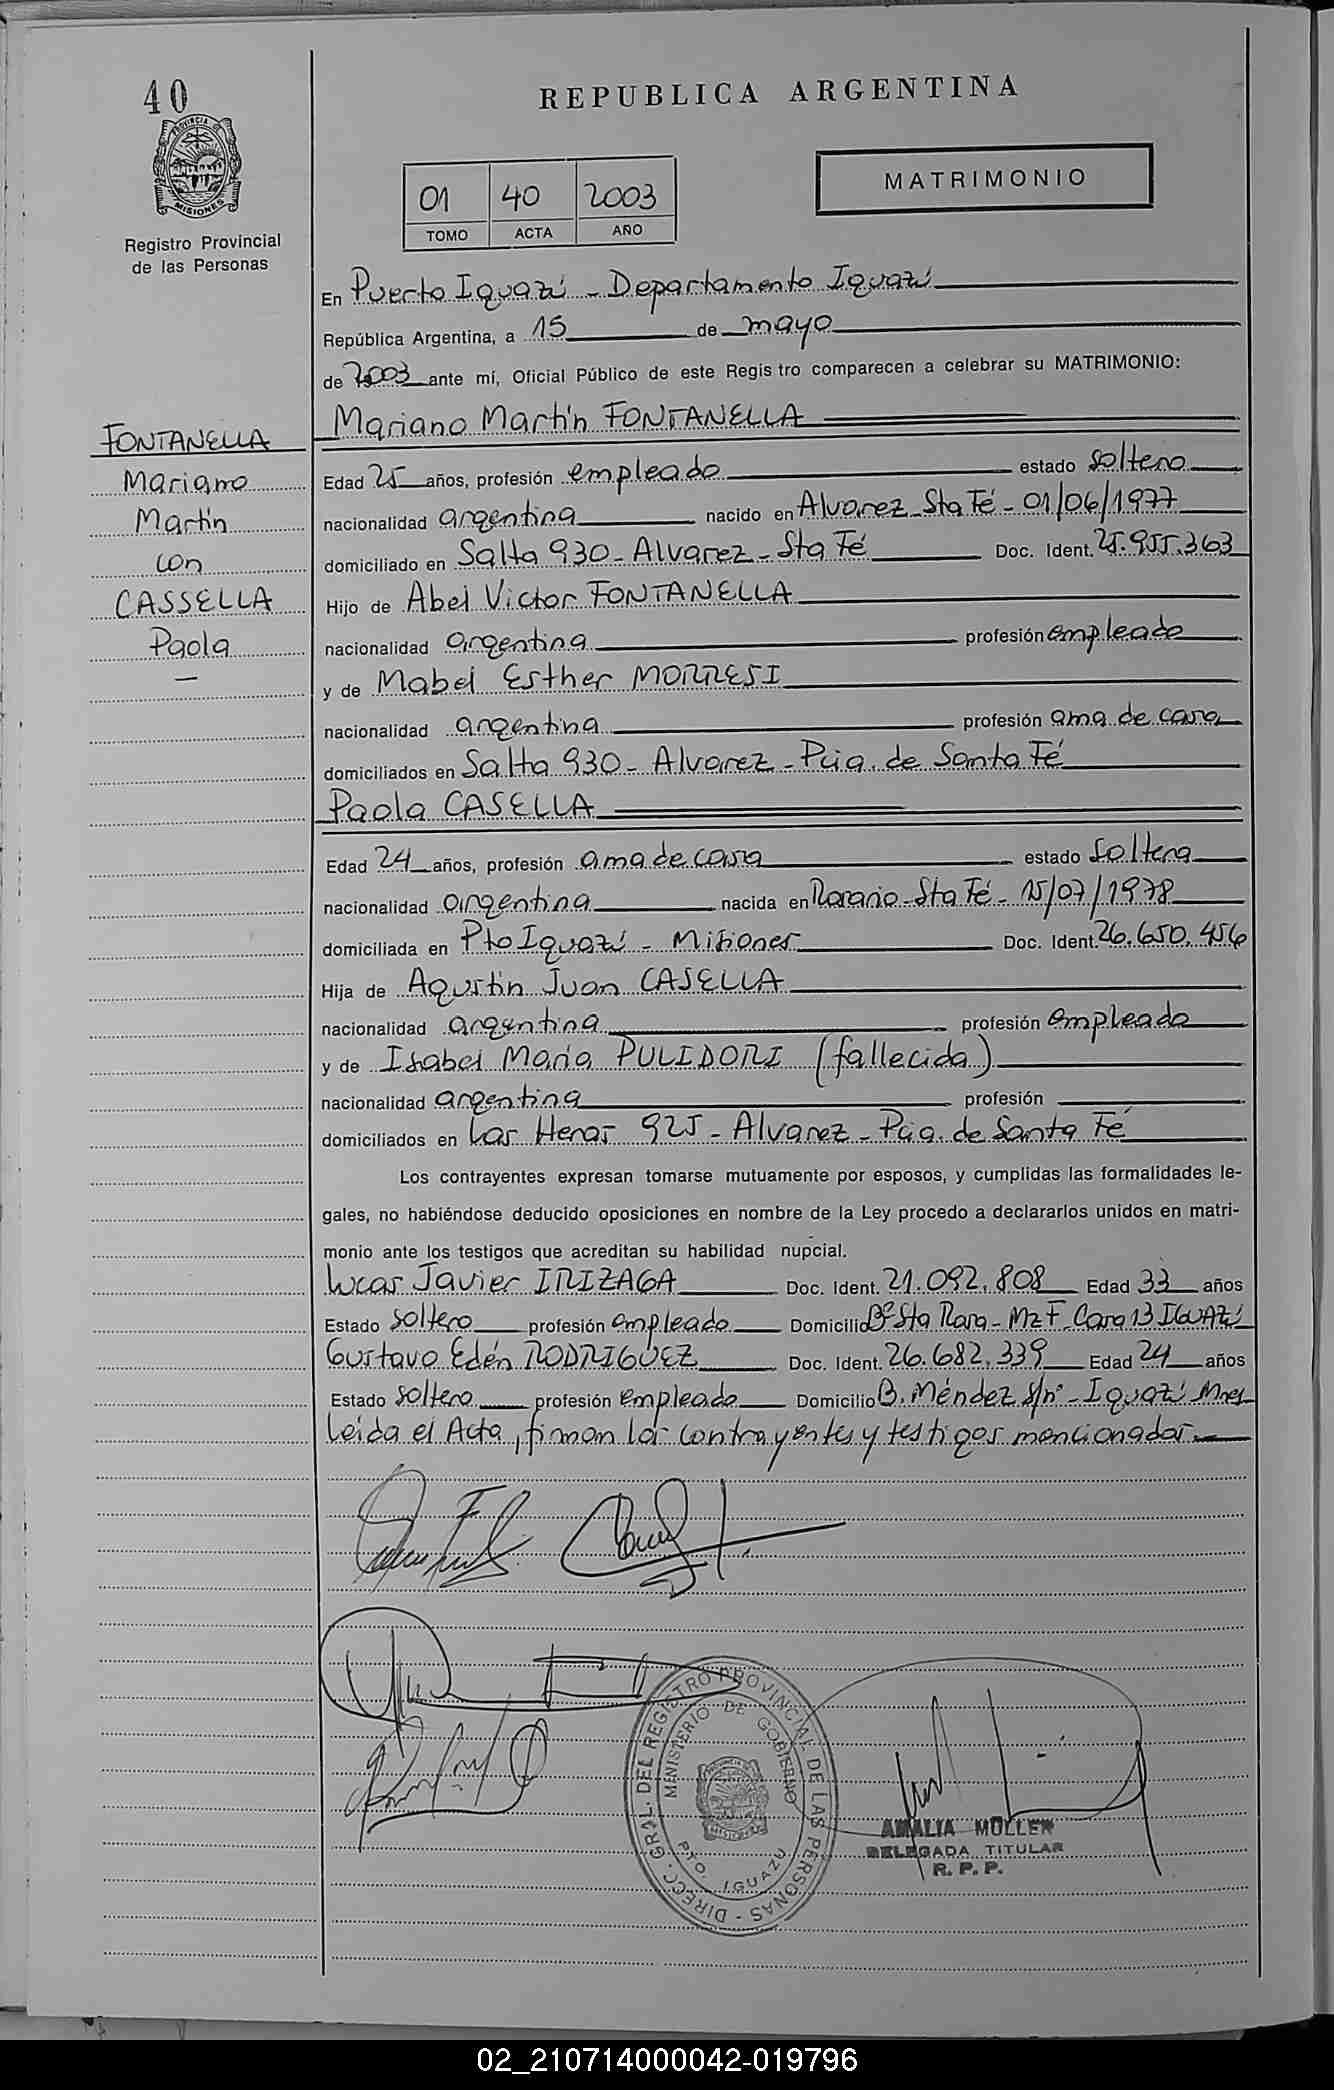 40
REPUBLICA ARGENTINA
PROVINCIA DE
MISIONES
Registro Provincial
de las Personas
01 40 2003
TOMO ACTA AÑO
MATRIMONIO
En Puerto Iguazú - Departamento Iguazú
República Argentina, a 15 de mayo
de 2003 ante mí, Oficial Público de este Registro comparecen a celebrar su MATRIMONIO:
Mariano Martín FONTANELLA
FONTANELLA
Mariano
Martín
con
CASSELLA
Paola
—
Edad 25 años, profesión empleado estado soltero
nacionalidad argentina nacido en Alvarez - Sta Fé - 01/06/1977
domiciliado en Salta 930 - Alvarez - Sta Fé Doc. Ident. 25.955.363
Hijo de Abel Victor FONTANELLA
nacionalidad argentina profesión empleado
y de Mabel Esther MORRESI
nacionalidad argentina profesión ama de casa
domiciliados en Salta 930 - Alvarez - Pcia. de Santa Fé
Paola CASELLA
Edad 24 años, profesión ama de casa estado soltera
nacionalidad argentina nacida en Rosario - Sta Fé - 15/07/1978
domiciliada en Pto Iguazú - Misiones Doc. Ident. 26.650.456
Hija de Agustín Juan CASELLA
nacionalidad argentina profesión empleado
y de Isabel María PULIDORI (fallecida)
nacionalidad argentina profesión
domiciliados en Las Heras 925 - Alvarez - Pcia. de Santa Fé
Los contrayentes expresan tomarse mutuamente por esposos, y cumplidas las formalidades le-
gales, no habiéndose deducido oposiciones en nombre de la Ley procedo a declararlos unidos en matri-
monio ante los testigos que acreditan su habilidad nupcial.
Lucas Javier IRIZAGA Doc. Ident. 21.092.808 Edad 33 años
Estado soltero profesión empleado Domicilio Bº Sta Rosa - Mz F - Casa 13 IGUAZÚ
Gustavo Edén RODRIGUEZ Doc. Ident. 26.682.339 Edad 24 años
Estado soltero profesión empleado Domicilio B. Méndez s/nº - Iguazú Mnes
Leída el Acta, firman los contrayentes y testigos mencionados
DIRECC. GRAL. DEL REGISTRO PROVINCIAL DE LAS PERSONAS -
MINISTERIO DE GOBIERNO
PTO. IGUAZU
AMALIA MULLER
DELEGADA TITULAR
R. P. P.
02_210714000042-019796